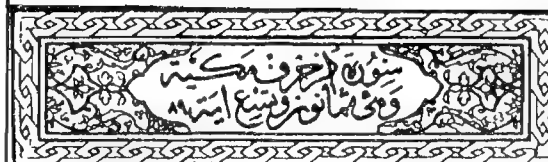 سورة الزخرف مكية
وهي ثمانون وتسع آية ٨٩